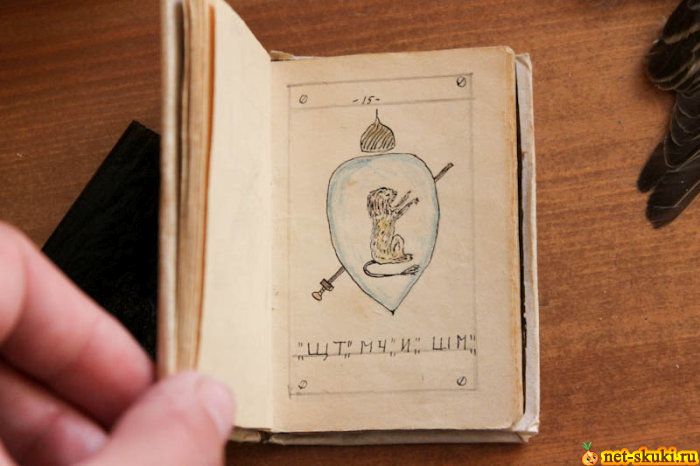 -15-
"ЩТ" "МЧ" "И" "ШМ"
net-skuki.ru